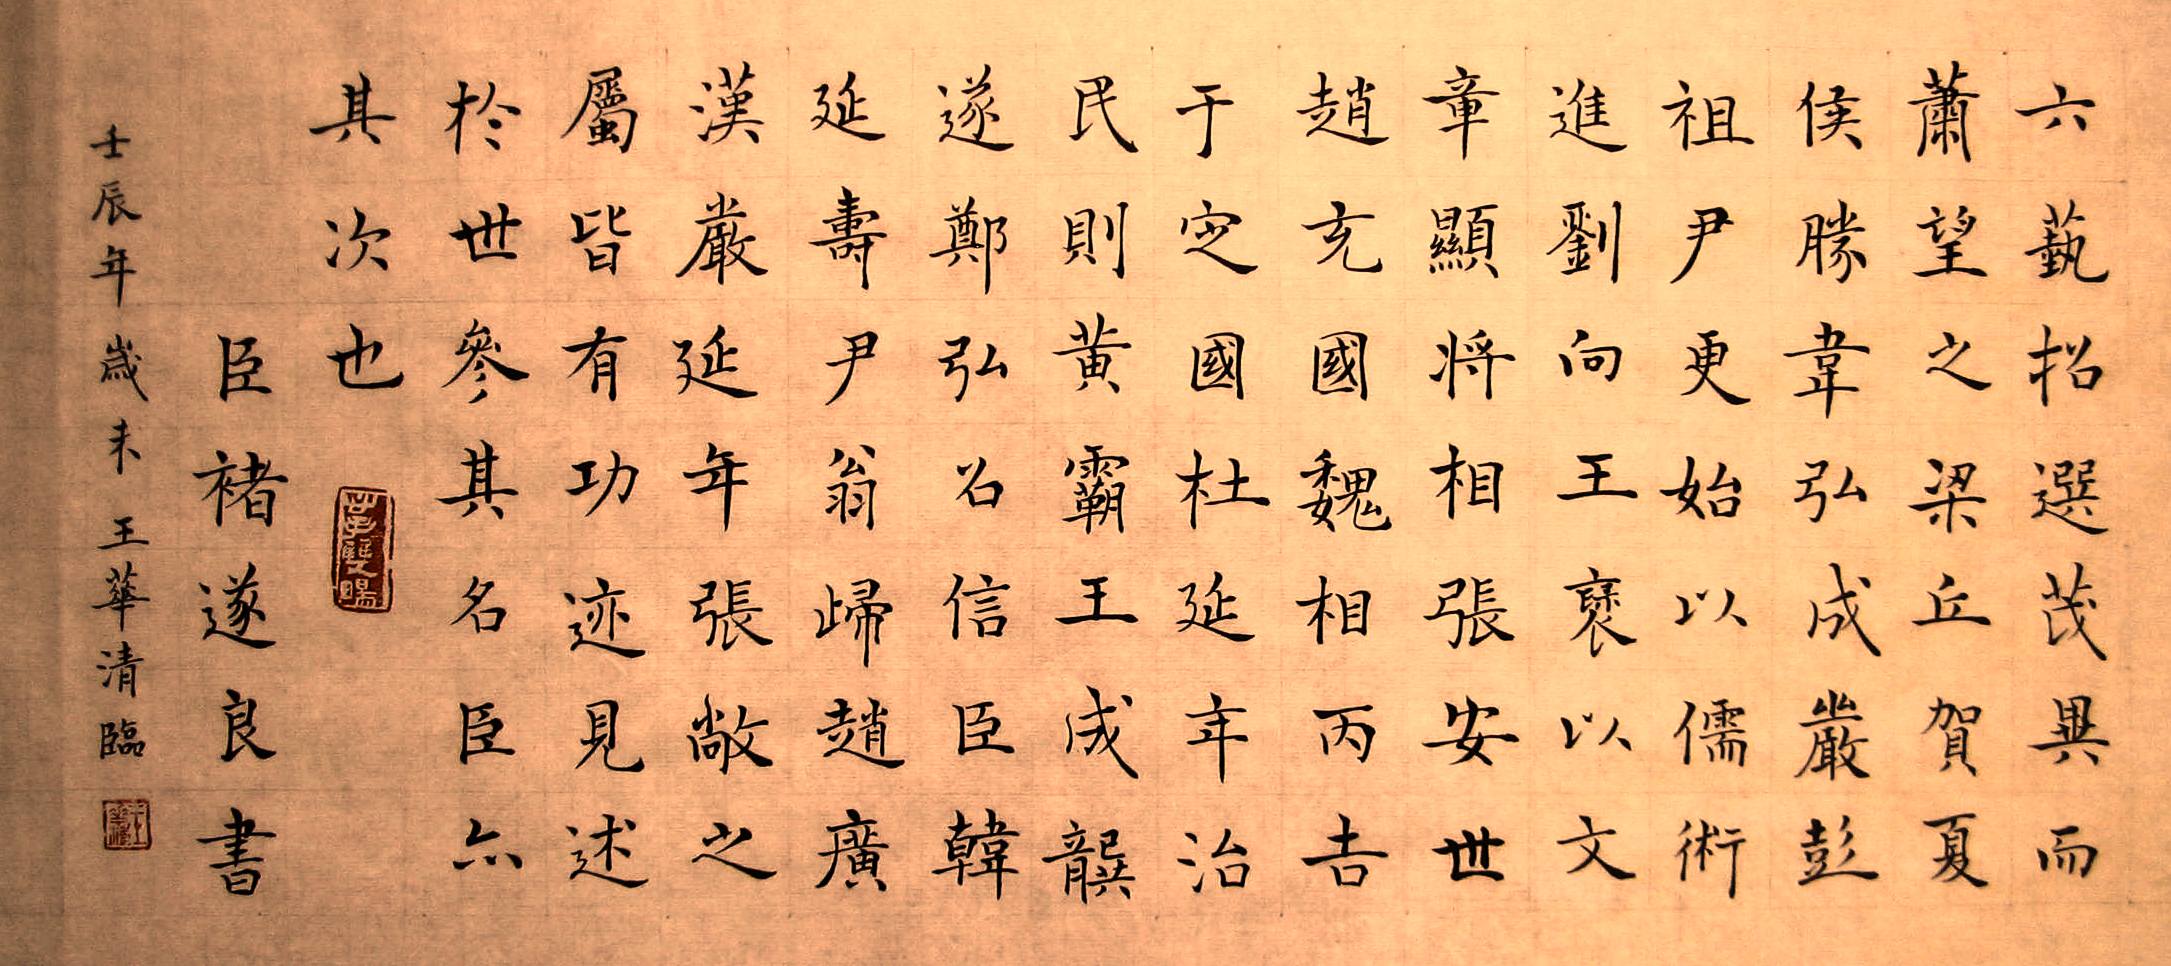 六藝招選茂異而
蕭望之梁丘賀夏
侯勝韋弘成嚴彭
祖尹更始以儒術
進劉向王襃以文
章顯將相張安世
趙充國魏相丙吉
于定國杜延年治
民則黃霸王成龔
遂鄭弘召信臣韓
延壽尹翁歸趙廣
漢嚴延年張敞之
屬皆有功迹見述
於世參其名臣亦
其次也
臣褚遂良書
壬辰年歲末王華清臨